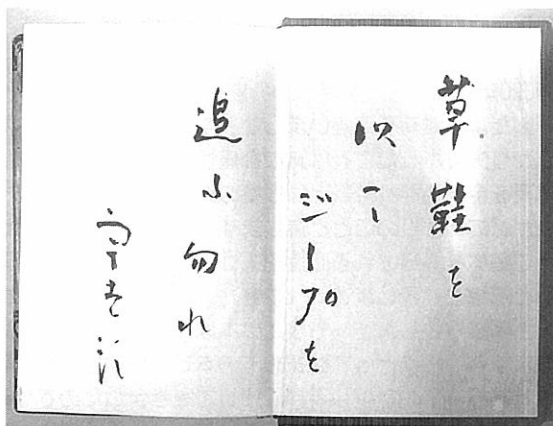 草鞋を
以て
ジープを
追ふ勿れ